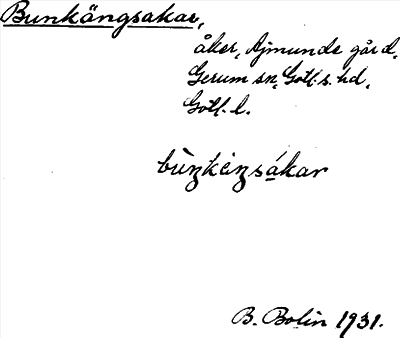 Bunkängsakar,
åker, Ajmunde gård,
Gerum sn, Gotl. s. hd,
Gotl. l.
bùŋkèŋsákar
B. Bolin 1931.